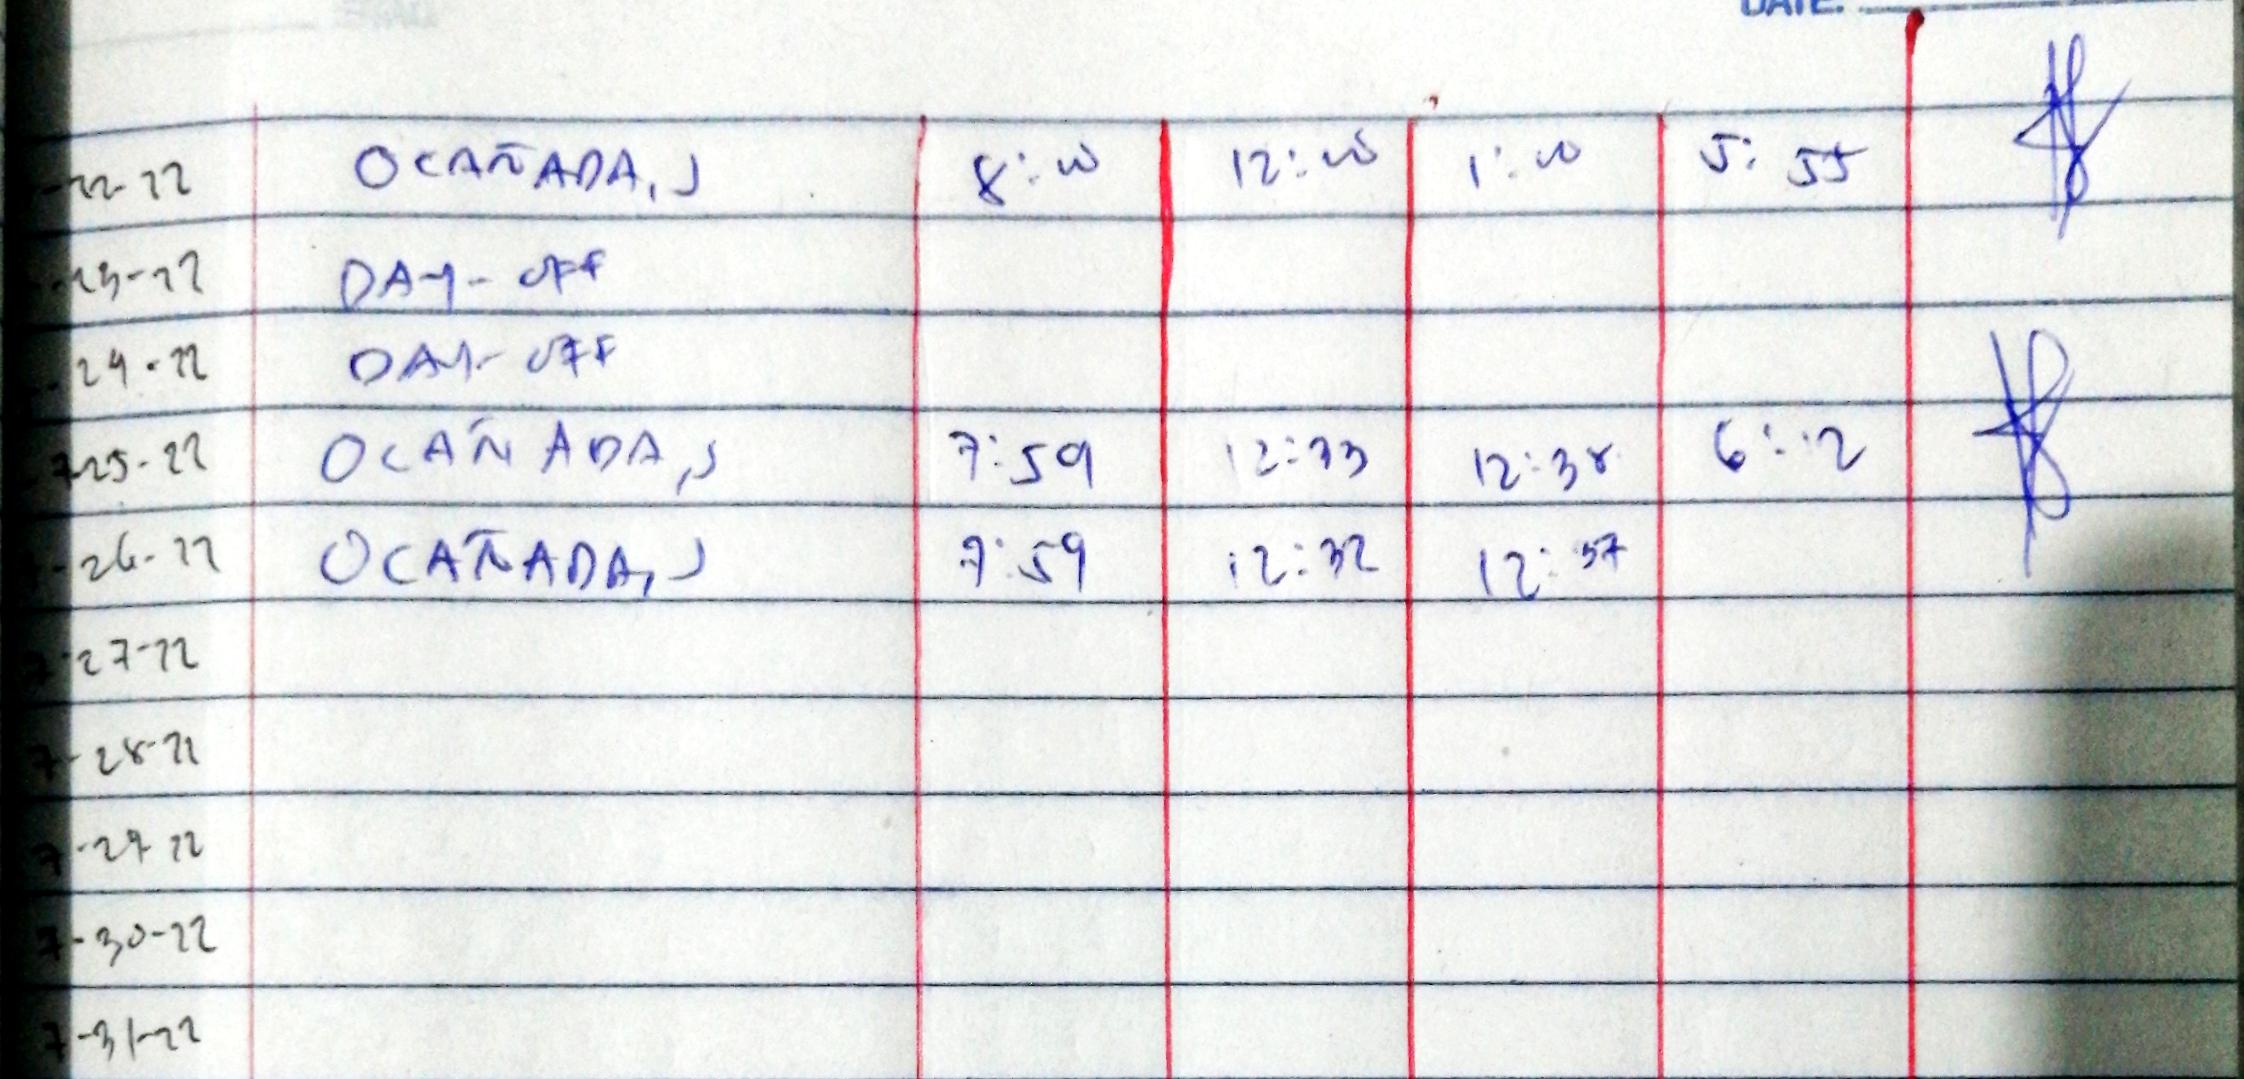 DATE:
-22-22 OCAÑADA, J 8:00 12:00 1:00 5:55
-23-22 DAY-OFF
-24-22 DAY-OFF
7-25-22 OCAÑADA, J 7:59 12:33 12:38 6:12
-26-22 OCAÑADA, J 7:59 12:32 12:37
7-27-22
7-28-22
7-29-22
7-30-22
7-31-22